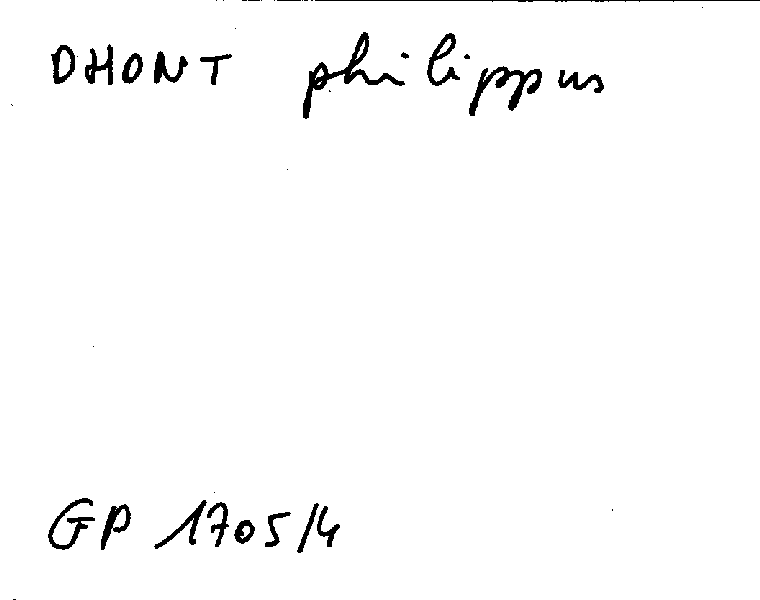 DHONT philippus
GP 1705/4